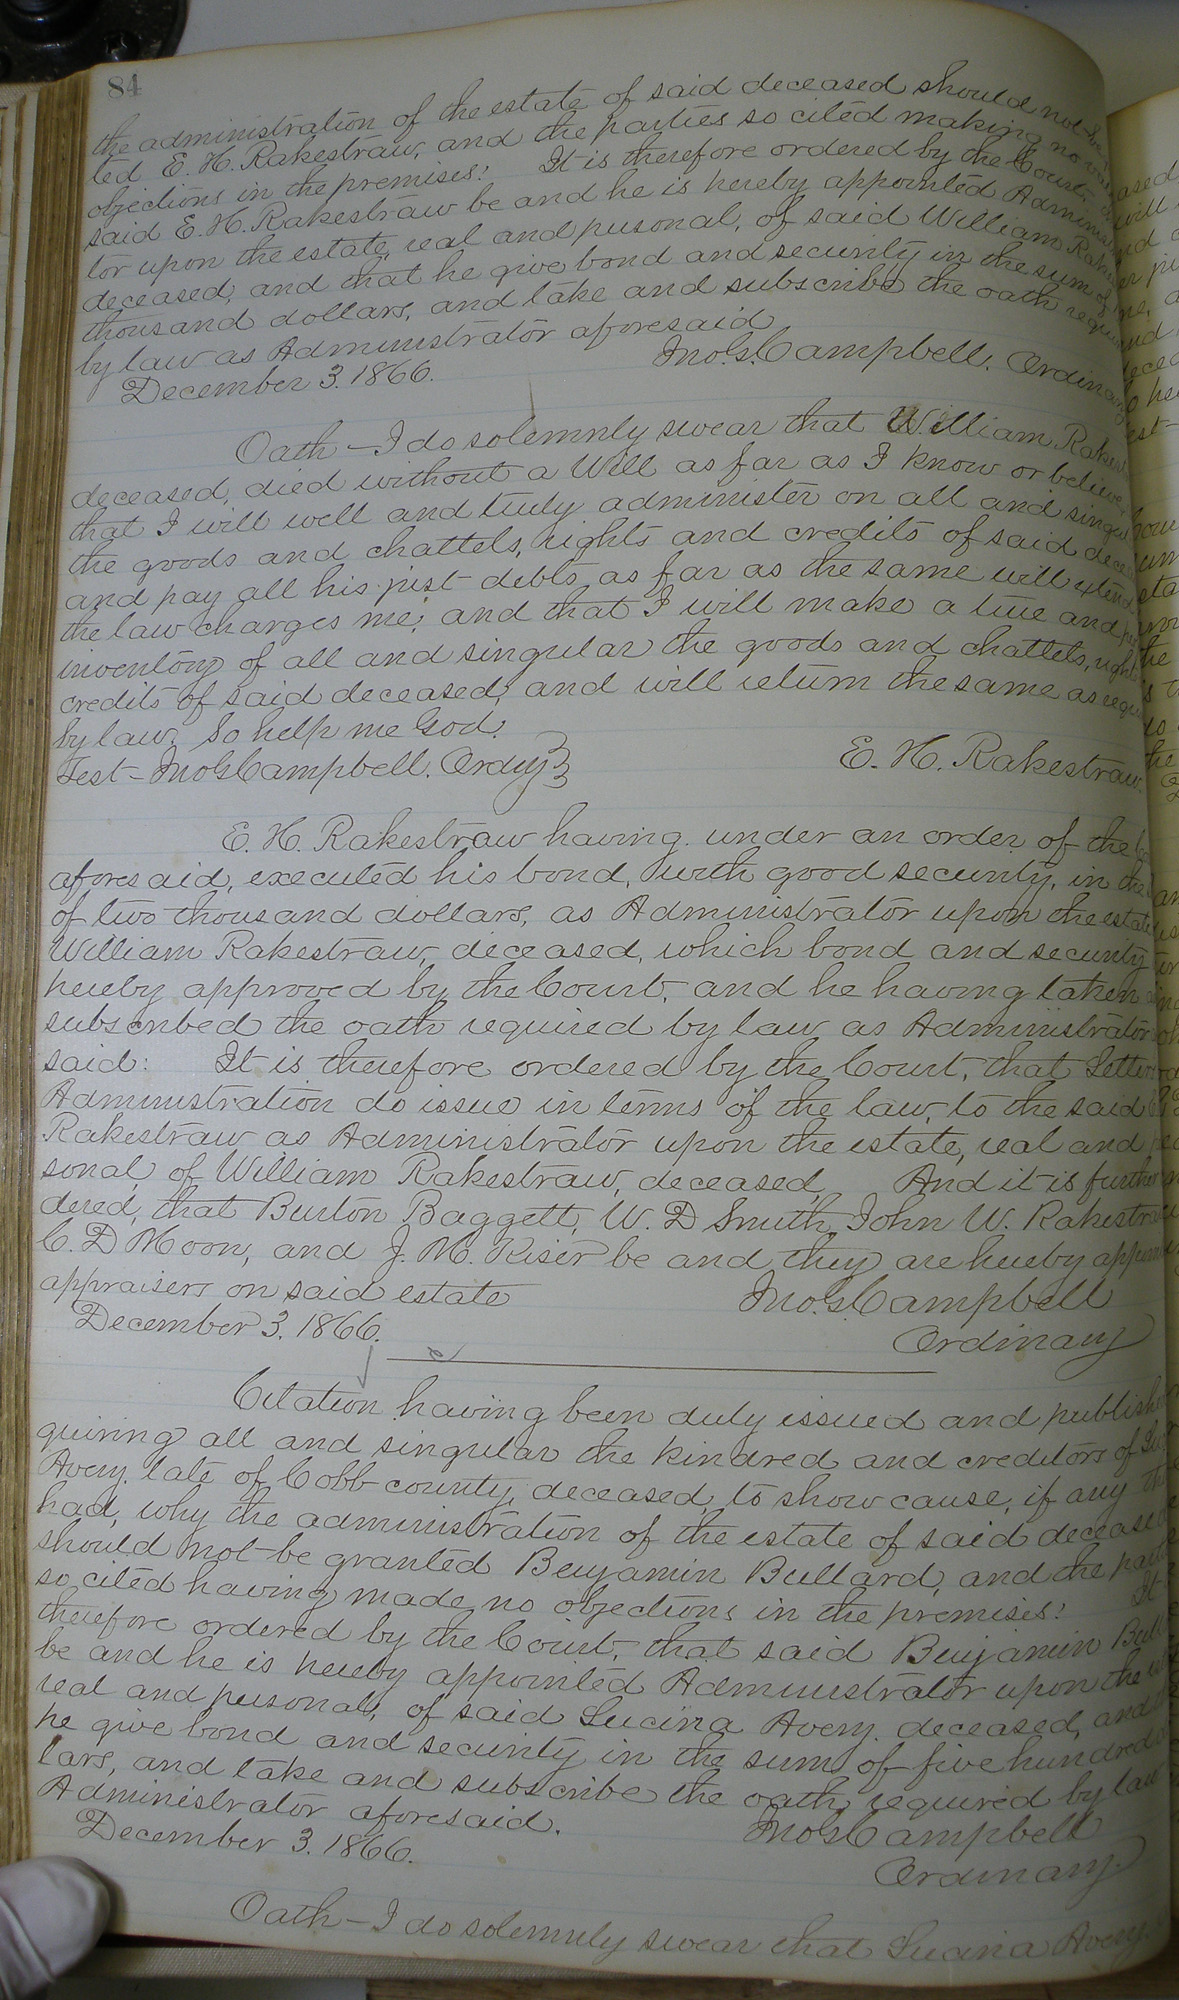 84
the administration of the estate of said deceased should not be
ted E. H. Rakestraw, and the parties so cited making no
objections in the premises: It is therefore ordered by the Court,
said E. H. Rakestraw be and he is hereby appointed Adminis
tor upon the estate, real and personal, of said William Rak
deceased, and that he give bond and security in the sum of
thousand dollars, and take and subscribe the oath requi
by law as Administrator aforesaid
December 3. 1866. Jno. G. Campbell, Ordinary
Oath - I do solemnly swear that William Rakest
deceased, died without a Will as far as I know or believe,
that I will well and truly administer on all and singul
the goods and chattels, rights and credits of said dece
and pay all his just debts, as far as the same will extend
the law charges me; and that I will make a true and per
inventory of all and singular the goods and chattels, rights
credits of said deceased, and will return the same as requ
by law. So help me God.
Test - Jno G Campbell. Ordy E. H. Rakestraw.
E. H. Rakestraw having under an order of the
aforesaid, executed his bond, with good security, in the
of two thousand dollars, as Administrator upon the estate
William Rakestraw, deceased, which bond and security
hereby approved by the Court, and he having taken
subscribed the oath required by law as Administrator
said: It is therefore ordered by the Court, that Letters
Administration do issue in terms of the law, to the said
Rakestraw as Administrator upon the estate, real and
sonal, of William Rakestraw, deceased, And it is further
dered, that Burton Baggett, W. D Smith, John W. Rakestraw
C. D Moon, and J. M. Kiser be and they are hereby appoin
appraisers on said estate Jno. G. Campbell
December 3. 1866. Ordinary
Citation having been duly issued and publishe
quiring all and singular the kindred and creditors of Lu
Avery late of Cobb county, deceased, to show cause, if any th
had, why the administration of the estate of said deceased
should not be granted Benjamin Bullard, and the part
so cited having made no objections in the premises: It
therefore ordered by the Court, that said Benjamin Bull
be and he is hereby appointed Administrator upon the
real and personal, of said Lucina Avery. deceased, and
he give bond and security in the sum of five hundred
lars, and take and subscribe the oath required by law
Administrator aforesaid. Jno G Campbell
December 3. 1866. Ordinary
Oath - I do solemnly swear that Lucina Avery